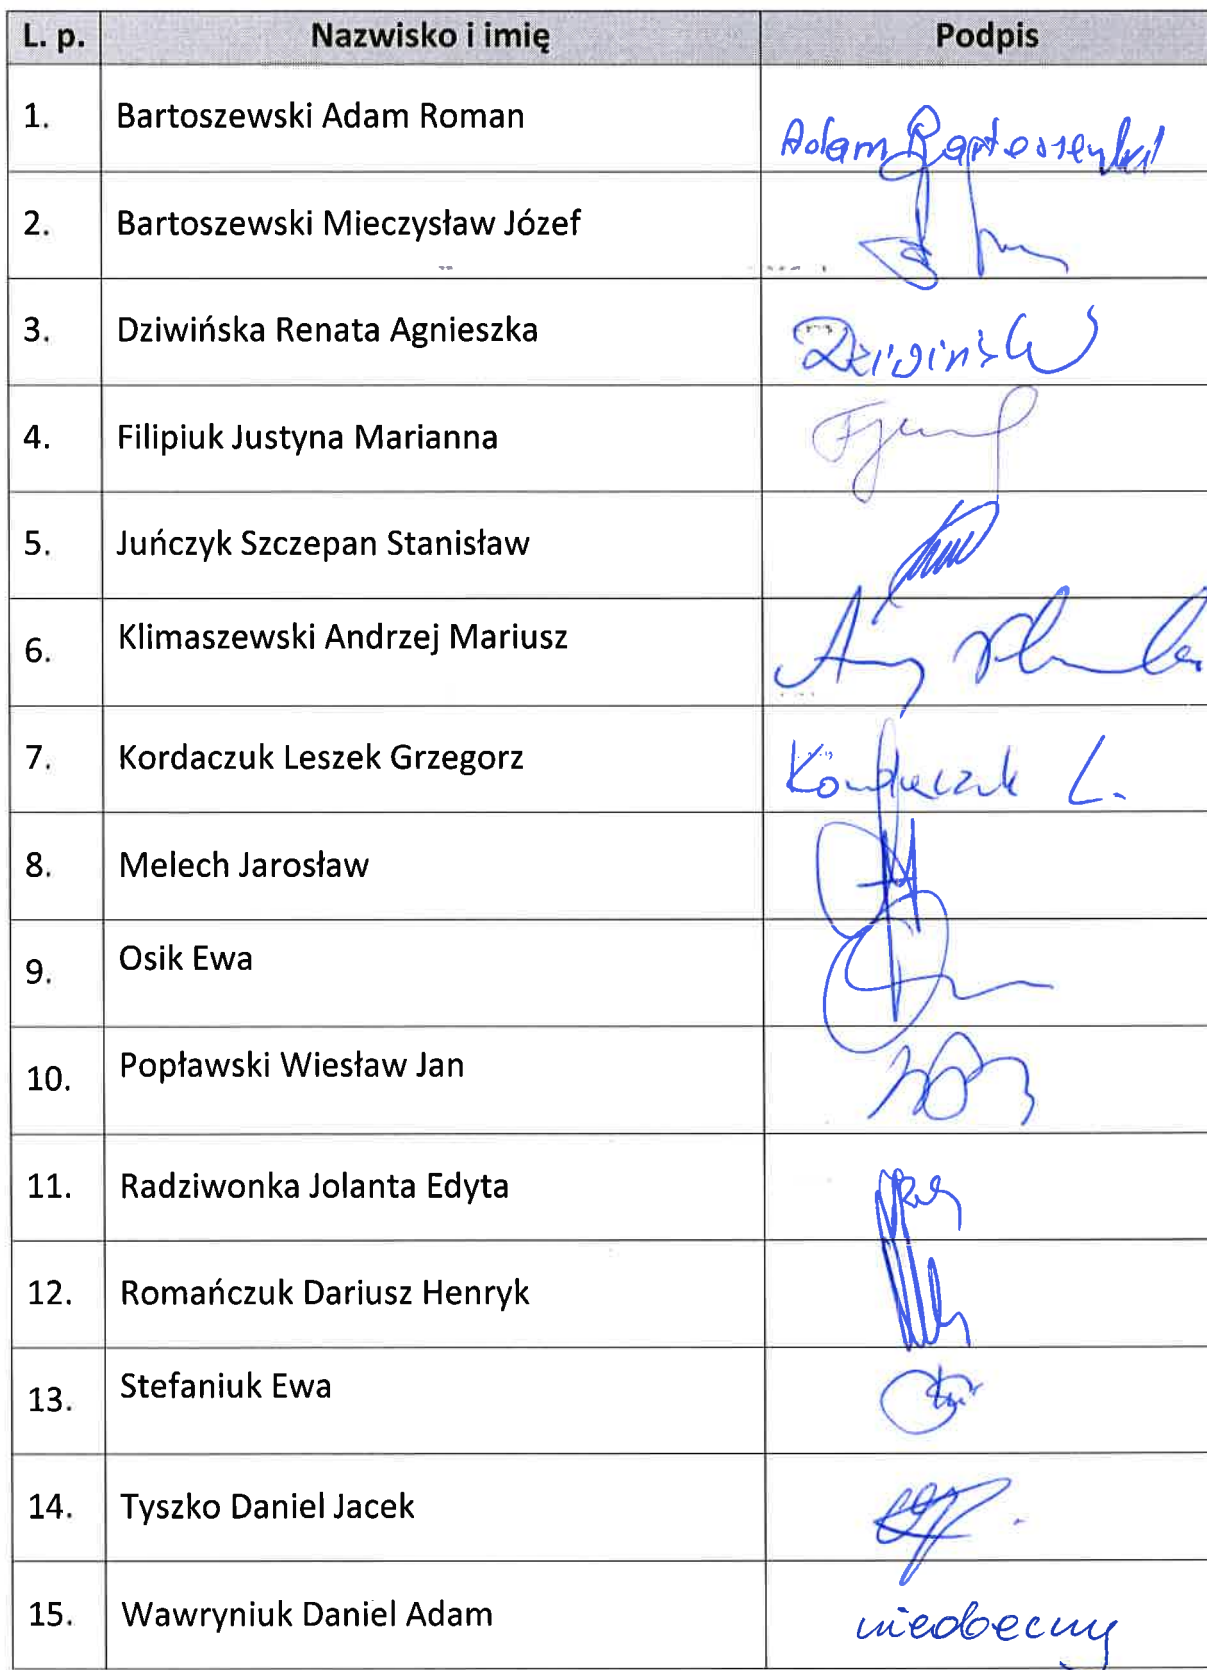 L. p. Nazwisko i imię Podpis
1. Bartoszewski Adam Roman Adam Bartoszewski
2. Bartoszewski Mieczysław Józef
3. Dziwińska Renata Agnieszka Dziwińska
4. Filipiuk Justyna Marianna
5. Juńczyk Szczepan Stanisław
6. Klimaszewski Andrzej Mariusz
7. Kordaczuk Leszek Grzegorz Kordaczuk L.
8. Melech Jarosław
9. Osik Ewa
10. Popławski Wiesław Jan
11. Radziwonka Jolanta Edyta
12. Romańczuk Dariusz Henryk
13. Stefaniuk Ewa
14. Tyszko Daniel Jacek
15. Wawryniuk Daniel Adam nieobecny